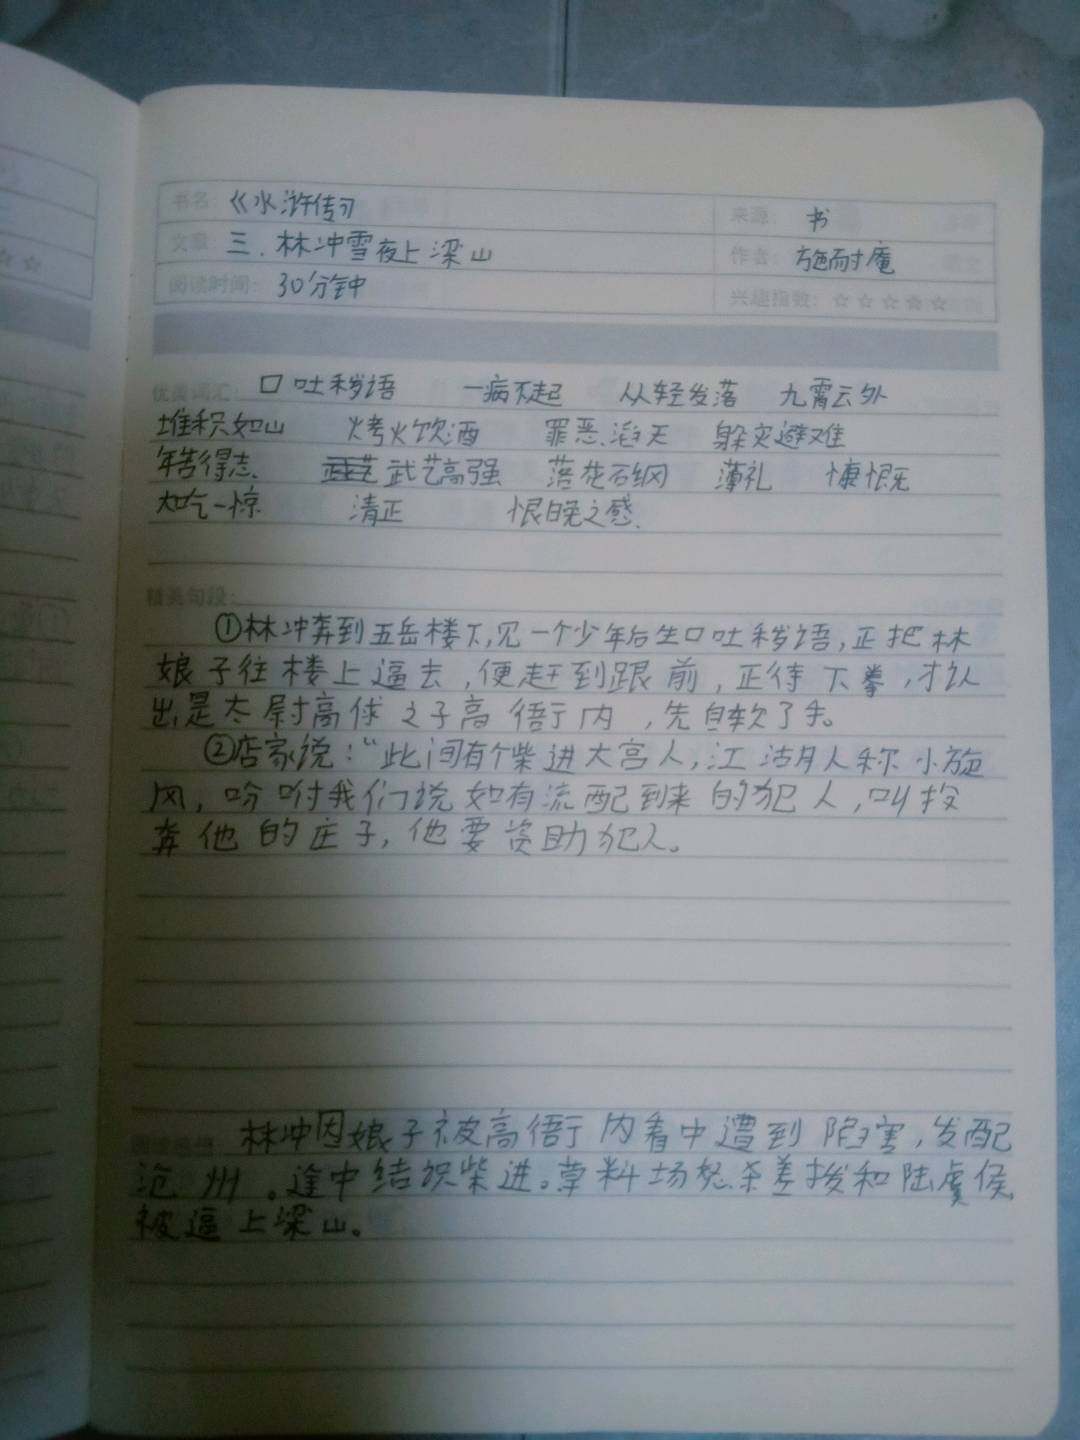 书名：《水浒传》 来源：书
文章：三.林冲雪夜上梁山 作者：施耐庵
阅读时间：30分钟 兴趣指数：☆☆☆☆☆
优美词汇：口吐秽语 一病不起 从轻发落 九霄云外
堆积如山 烤火饮酒 罪恶滔天 躲灾避难
年苦得志 武艺高强 落花石纲 薄礼 慷慨
大吃一惊 清正 恨晚之感
精美句段：
①林冲奔到五岳楼下,见一个少年后生口吐秽语,正把林
娘子往楼上逼去,便赶到跟前,正待下拳,才认
出是太尉高俅之子高衙内,先自软了手。
②店家说：“此间有个柴进大官人,江湖人称小旋
风,吩咐我们说如有流配到来的犯人,叫投
奔他的庄子,他要资助犯人。
林冲因娘子被高衙内看中遭到陷害,发配
沧州。途中结识柴进。草料场怒杀差拨和陆虞侯,
被逼上梁山。